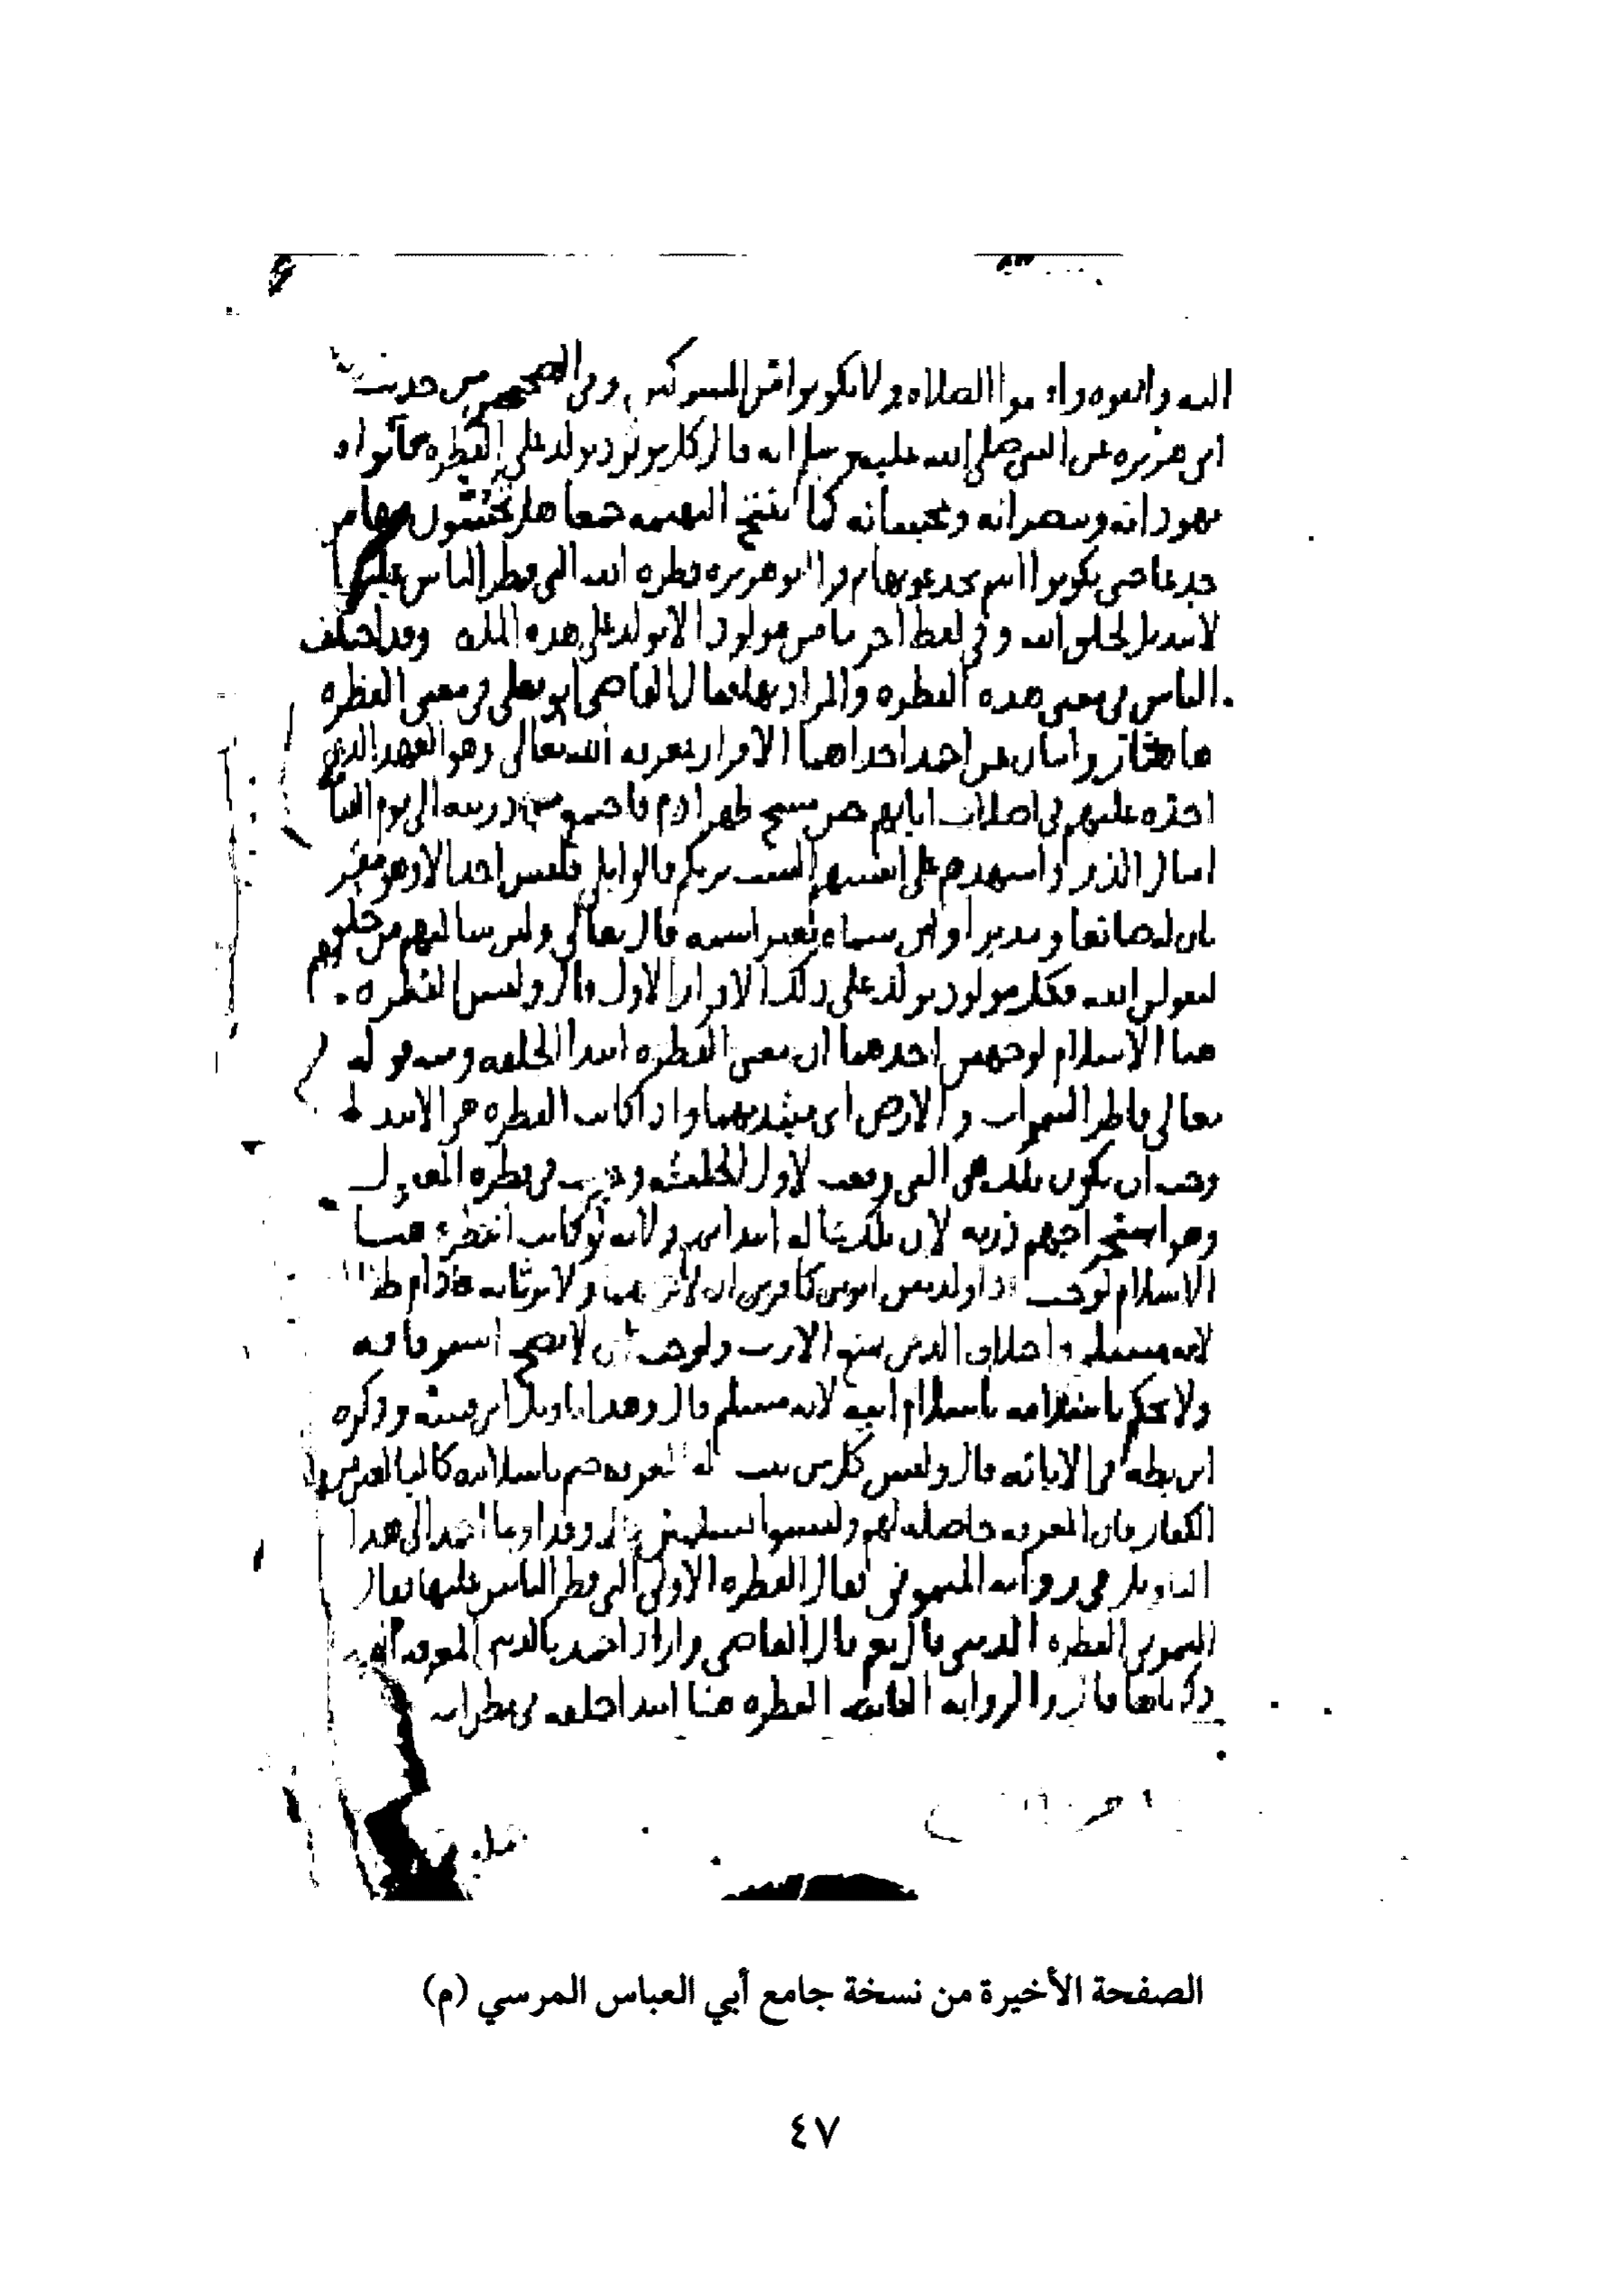 اليه واتقوه واقيموا الصلاه ولا تكونوا من المشركين وفي الصحيحين من حديث
ابي هريره عن النبي صلى الله عليه وسلم انه قال كل مولود يولد على الفطره فابواه
يهودانه وينصرانه ويمجسانه كما تنتج البهيمه جمعا هل تحسون فيها من
جدعا حتى تكونوا انتم تجدعونها ثم قرا ابو هريره فطره الله التي فطر الناس عليها
لا تبديل لخلق الله وفي لفظ اخر ما من مولود الا يولد على هذه المله وقد اختلف
الناس في معنى هذه الفطره والمراد بها فقال القاضي ابو يعلى في معنى الفطره
هاهنا روايتان عن احمد احداهما الاقرار بمعرفه الله تعالى وهو العهد الذي
اخذه عليهم في اصلاب ابايهم حين مسح ظهر ادم فاخرج من ذريته الى يوم القيا
امثال الذر واشهدهم على انفسهم الست بربكم قالوا بلى فليس احد الا وهو مقر
بان له صانعا ومدبرا وان سماه بغير اسمه قال تعالى ولين سالتهم من خلقهم
ليقولن الله فكل مولود يولد على ذلك الاقرار الاول قال وليس الفطره
هنا الاسلام لوجهين احدهما ان معنى الفطره ابتدا الخلقه ومنه قوله
تعالى فاطر السموات والارض اي مبتديهما واذا كانت الفطره هي الابتدا
وجب ان تكون تلك هي التي وقعت لاول الخلقه وجرت في فطره المعقول
وهو استخراجهم ذريه لان تلك حاله ابتدايهم ولانه لو كانت الفطره هنا
الاسلام لوجب اذا ولد بين ابوين كافرين ان لا يرثهما ولا يرثانه مادام طفلا
لانه مسلم واختلاف الدين يمنع الارث ولوجب ان لا يصح استرقاقه
ولا يحكم باسلامه باسلام ابيه لانه مسلم قال وهذا تاويل ابن قتيبه وذكره
ابن بطه في الابانه قال وليس كل من تثبت له المعرفه حكم باسلامه كالبالغين من
الكفار فان المعرفه حاصله لهم وليسوا بمسلمين قال وقد اوما احمد الى هذا
التاويل في روايه الميموني فقال الفطره الاولى التي فطر الناس عليها فقال
الميموني الفطره الدين قال نعم قال القاضي واراد احمد بالدين المعرفه التي
ذكرناها قال والروايه الثانيه الفطره هنا ابتدا خلقه في بطن امه
الصفحة الأخيرة من نسخة جامع أبي العباس المرسي (م)
٤٧